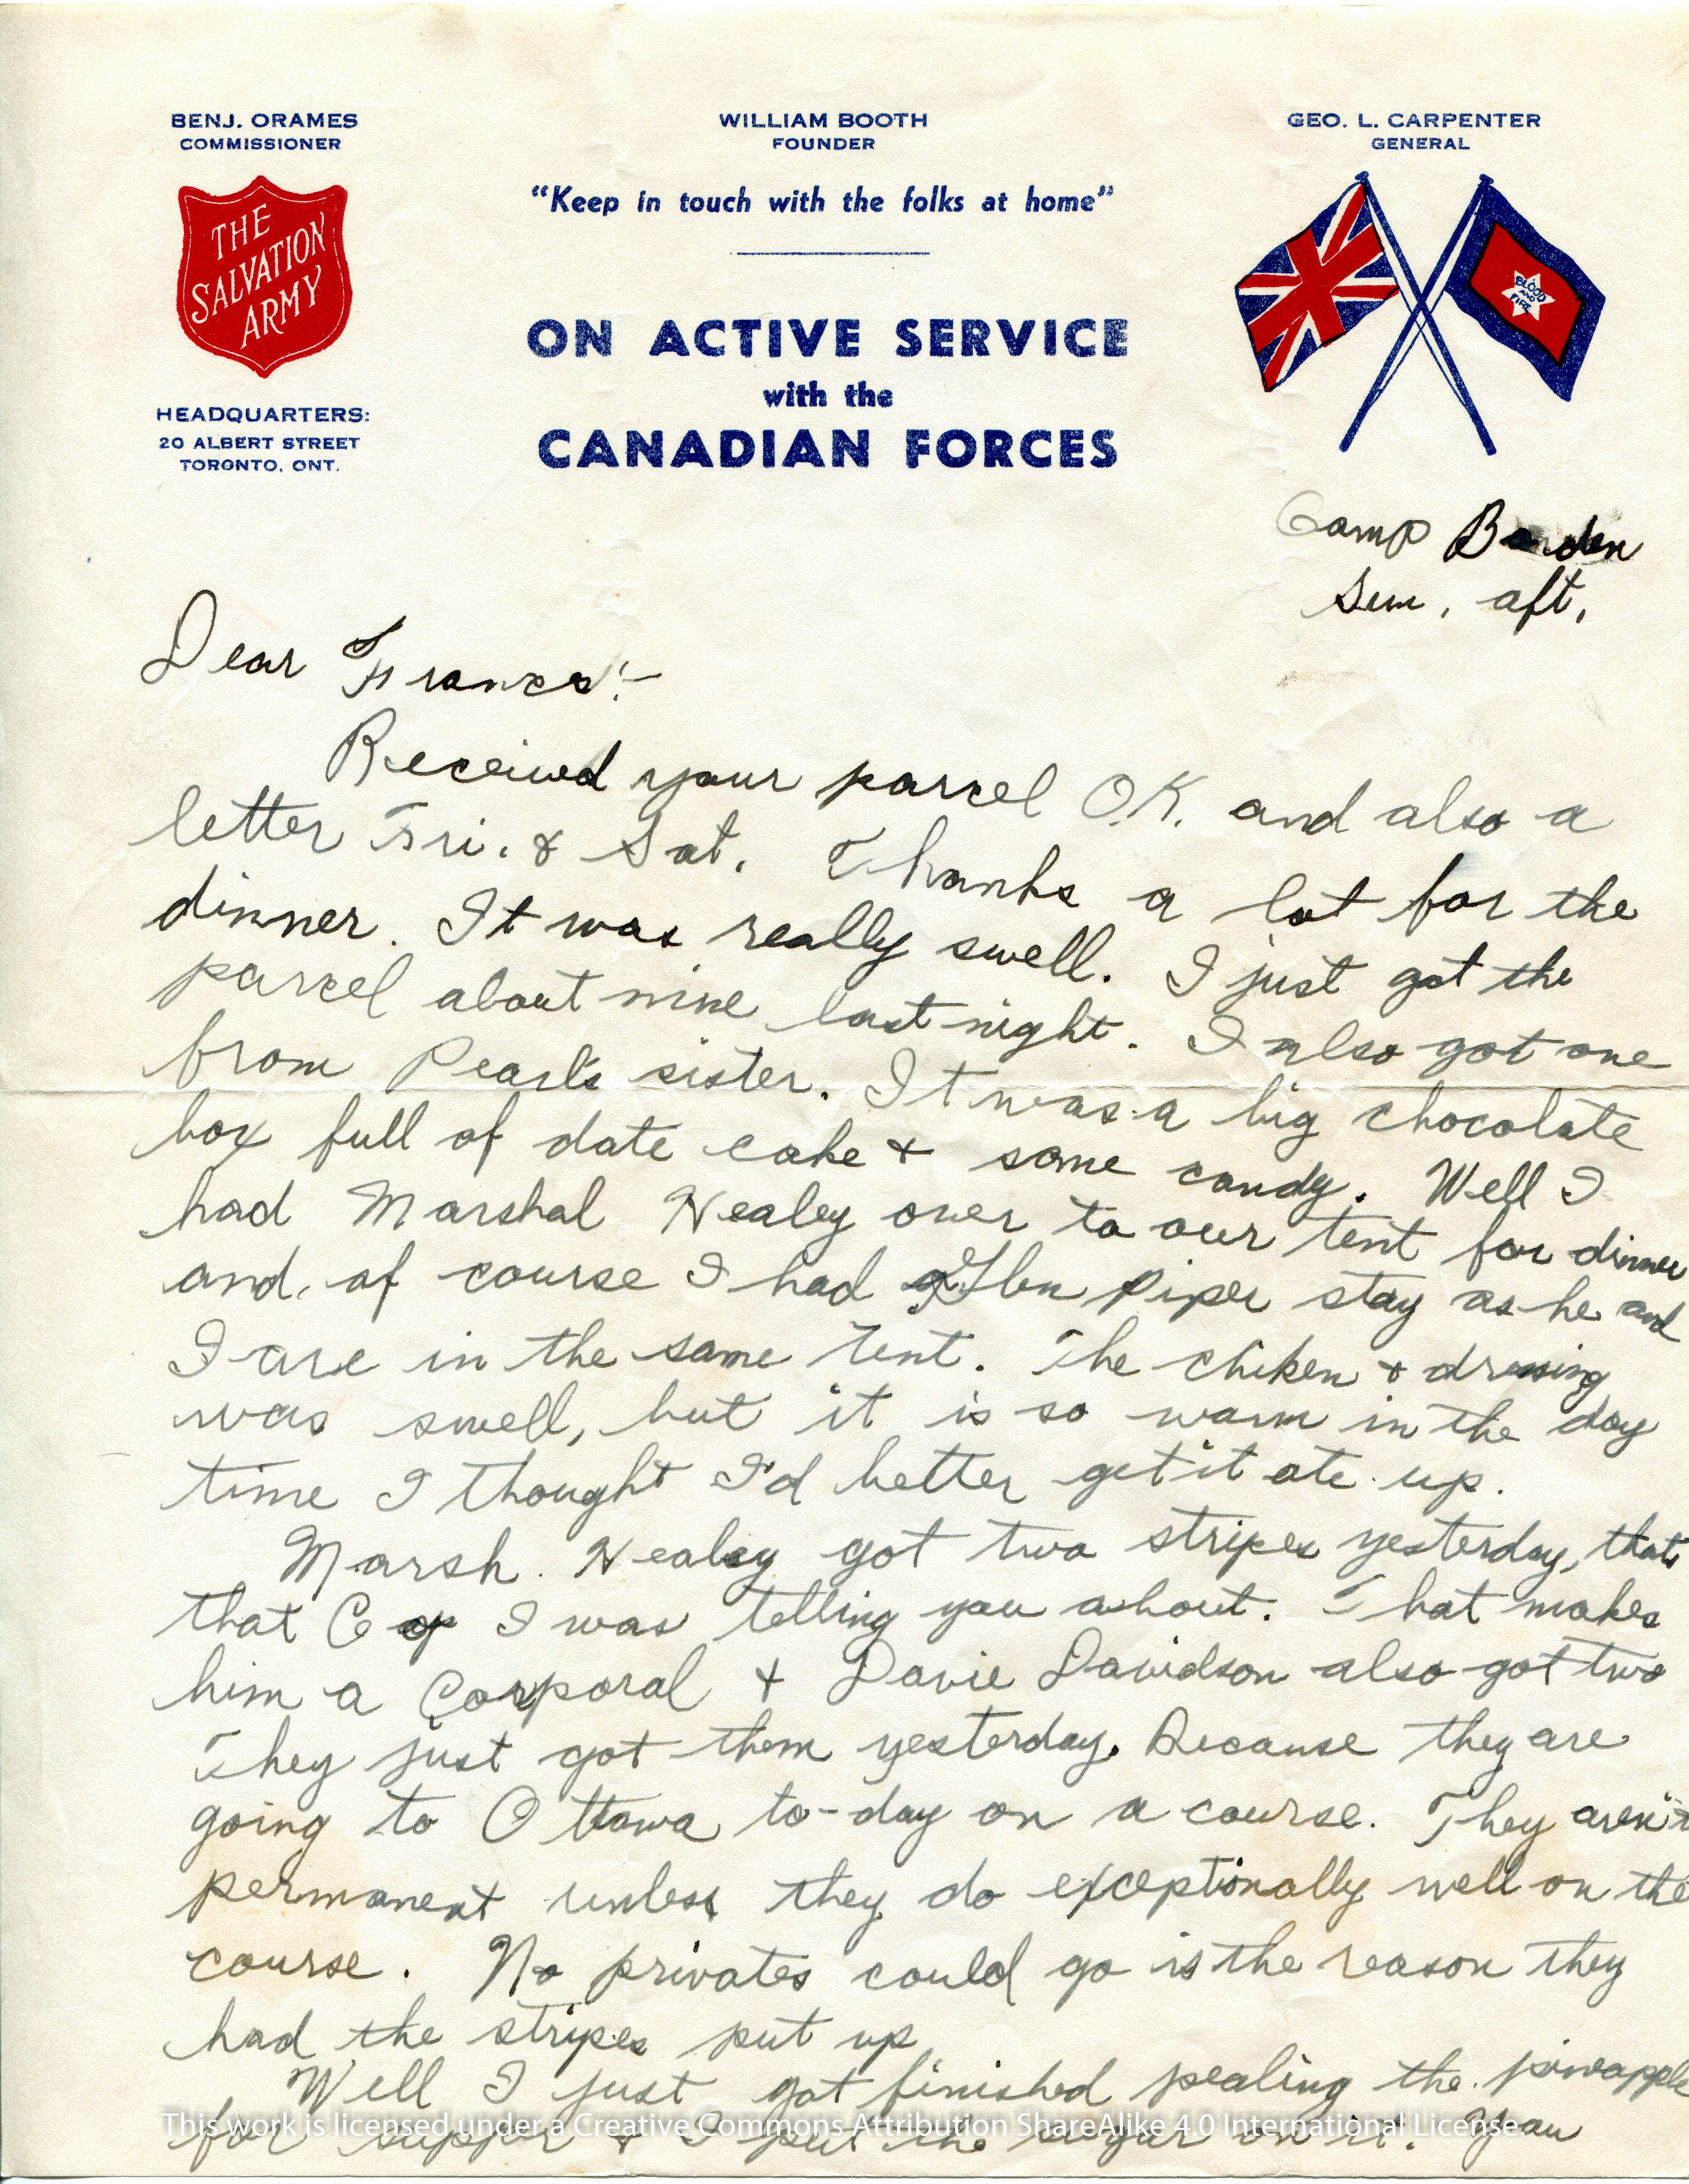 BENJ. ORAMES
COMMISSIONER
WILLIAM BOOTH
FOUNDER
GEO. L. CARPENTER
GENERAL
"Keep in touch with the folks at home"
THE
SALVATION
ARMY
BLOOD
AND
FIRE
ON ACTIVE SERVICE
with the
CANADIAN FORCES
HEADQUARTERS:
20 ALBERT STREET
TORONTO, ONT.
Camp Borden
Sun. aft.
Dear Frances:-
Received your parcel O.K. and also a
letter Fri. & Sat. Thanks a lot for the
dinner. It was really swell. I just got the
parcel about nine last night. I also got one
from Pearl's sister. It was a big chocolate
box full of date cake + some candy. Well I
had Marshal Nealey over to our tent for dinner
and of course I had Glen Piper stay as he and
I are in the same tent. The chiken + dressing
was swell, but it is so warm in the day
time I thought I'd better get it ate up.
Marsh. Nealey got two stripes yesterday, thats
that I was telling you about. That makes
him a Corporal + Davie Davidson also got two
They just got them yesterday. Because they are
going to Ottawa to-day on a course. They aren't
permanent unless they do exceptionally well on the
course. No privates could go is the reason they
had the stripes put up
Well I just got finished pealing the pineapple
for supper + I put the sugar on it. You
This work is licensed under a Creative Commons Attribution ShareAlike 4.0 International License